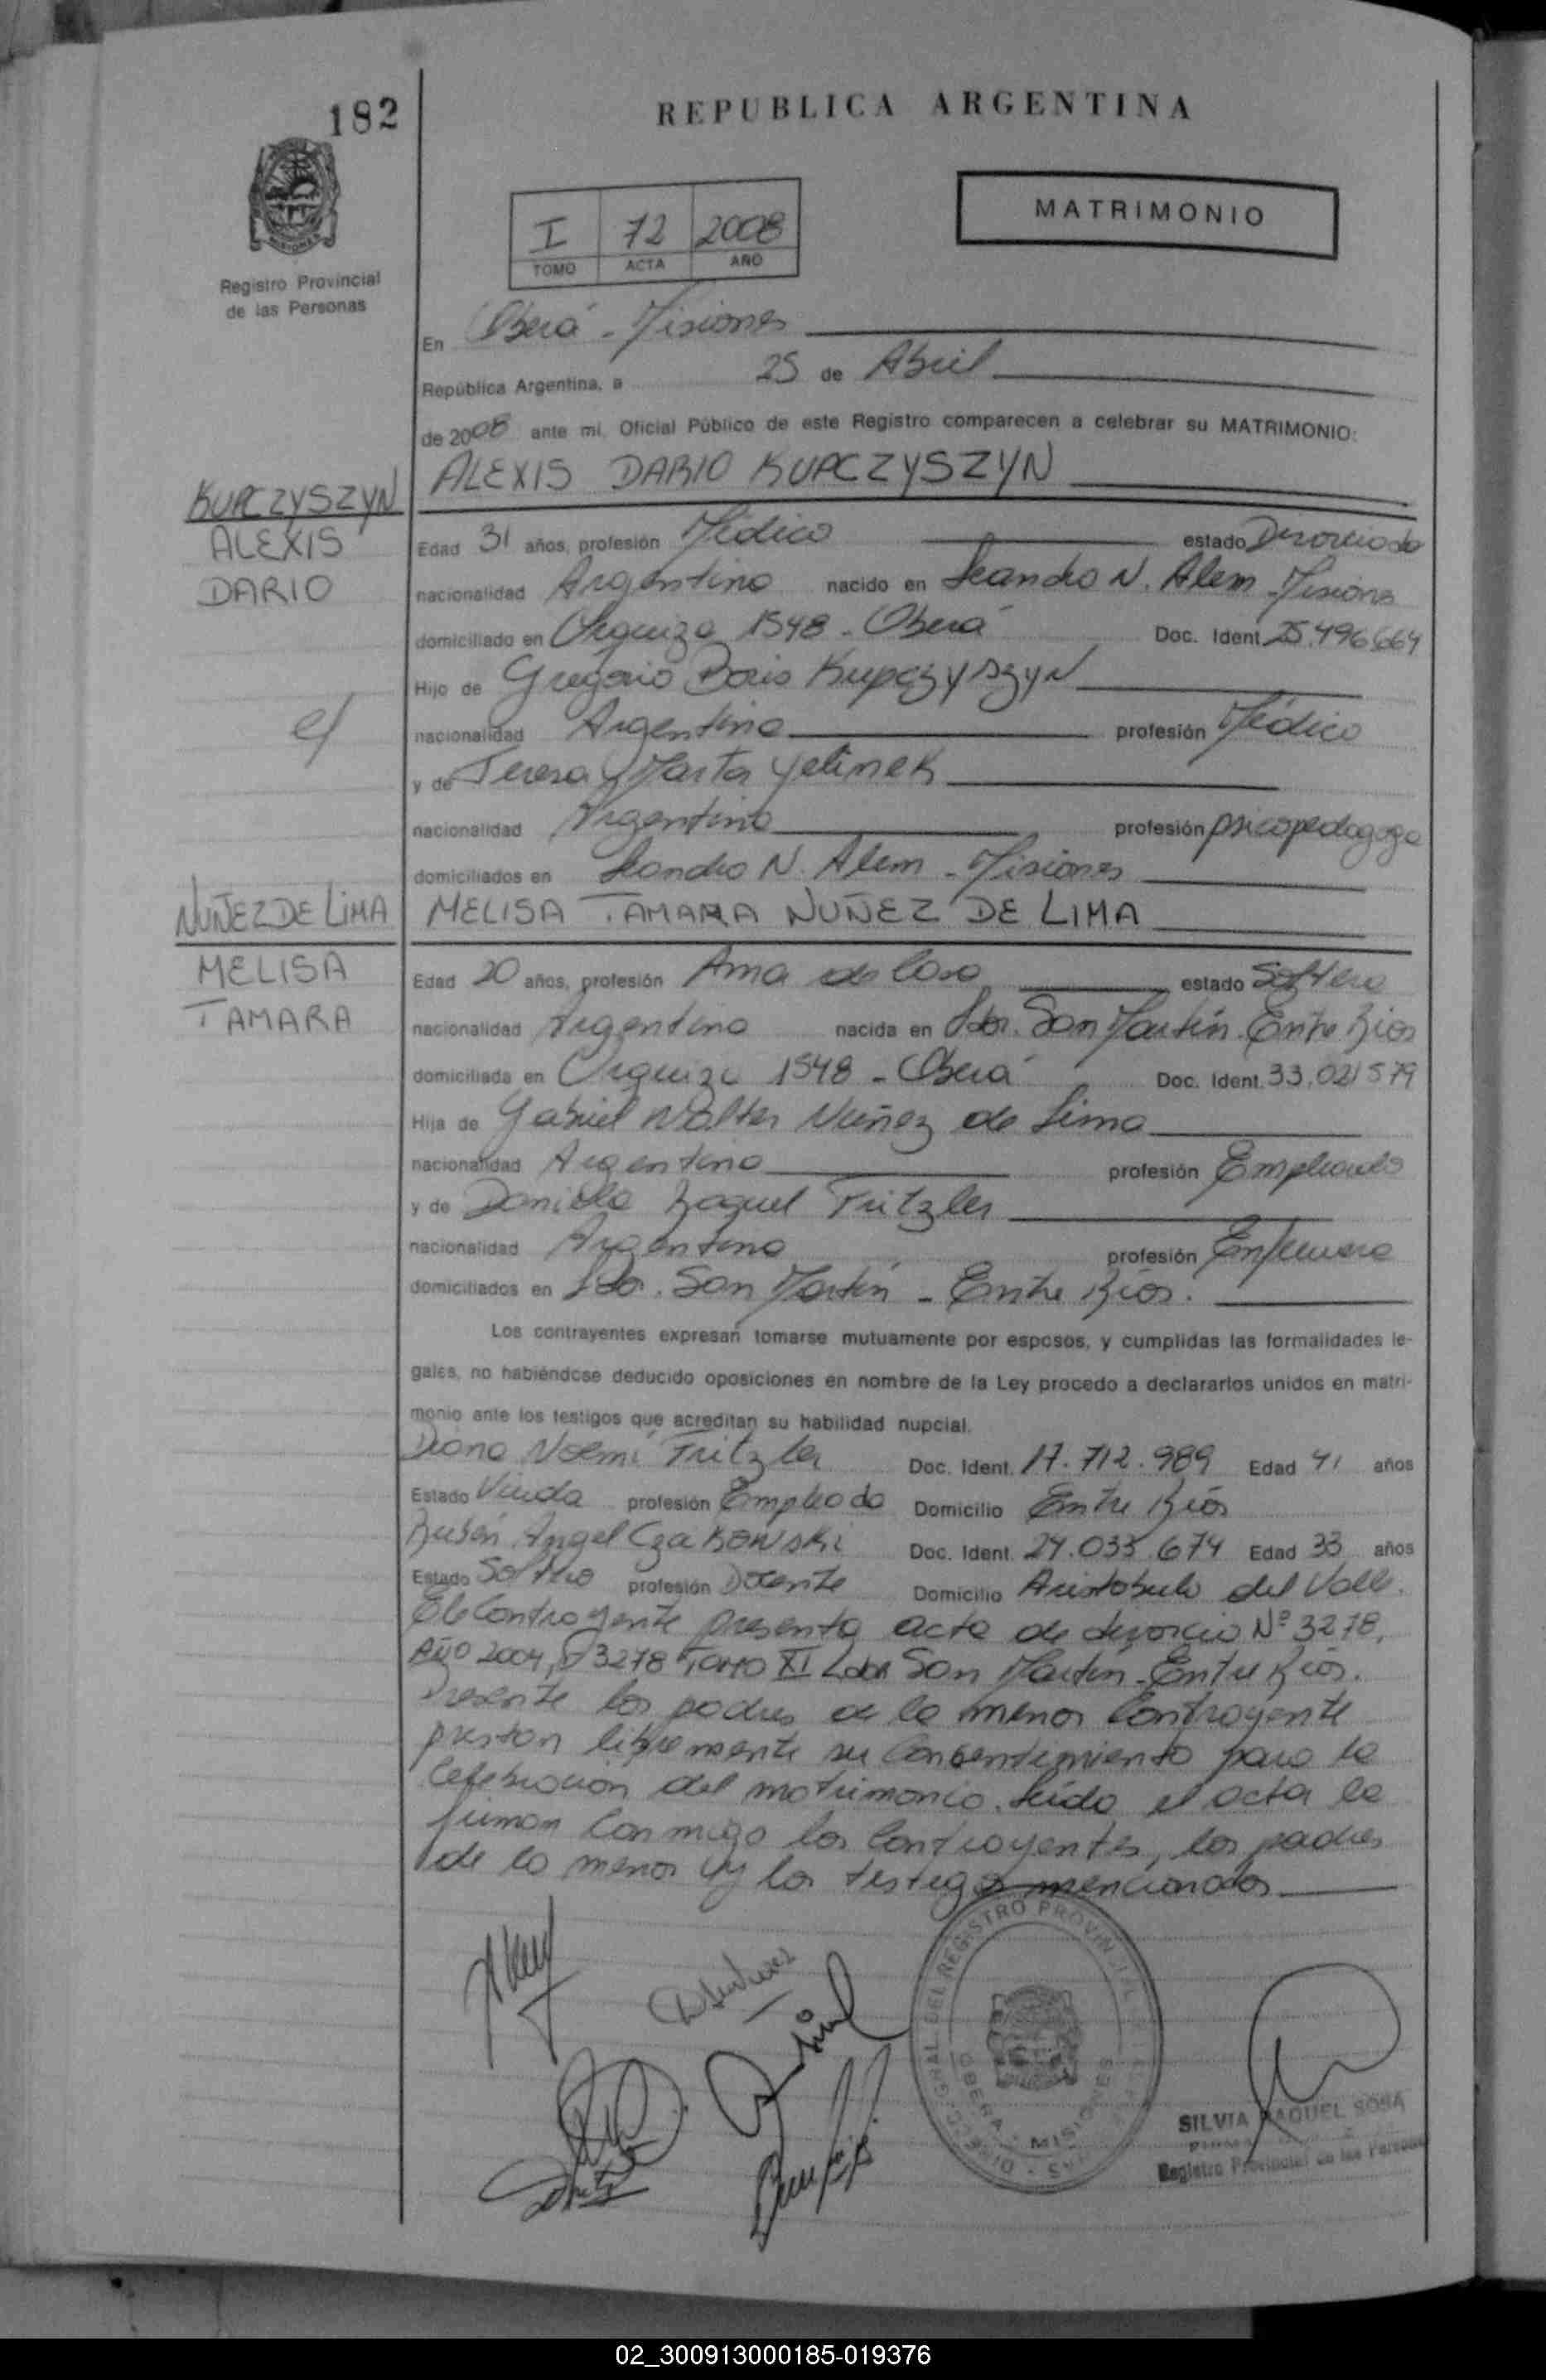 182
REPUBLICA ARGENTINA
MISIONES
Registro Provincial
de las Personas
I 72 2008
TOMO ACTA AÑO
MATRIMONIO
En Oberá - Misiones
República Argentina, a 25 de Abril
de 2008 ante mi, Oficial Público de este Registro comparecen a celebrar su MATRIMONIO:
ALEXIS DARIO KUPCZYSZYN
KUPCZYSZYN
ALEXIS
DARIO
Edad 31 años, profesión Médico estado Divorciado
nacionalidad Argentina nacido en Leandro N. Alem - Misiones
domiciliado en Urquiza 1548 - Oberá Doc. Ident. 25.496.664
Hijo de Gregorio Boris Kupczyszyn
nacionalidad Argentina profesión Médico
y de Teresa Marta Yelinek
nacionalidad Argentina profesión psicopedagoga
domiciliados en Leandro N. Alem - Misiones
NUÑEZ DE LIMA
MELISA
TAMARA
MELISA TAMARA NUÑEZ DE LIMA
Edad 20 años, profesión Ama de Casa estado Soltera
nacionalidad Argentina nacida en Ldor. San Martín - Entre Ríos
domiciliada en Urquiza 1548 - Oberá Doc. Ident. 33.021579
Hija de Gabriel Walter Nuñez de Lima
nacionalidad Argentina profesión Empleado
y de Daniela Raquel Fritzler
nacionalidad Argentina profesión Enfermera
domiciliados en Ldor. San Martín - Entre Ríos.
Los contrayentes expresan tomarse mutuamente por esposos, y cumplidas las formalidades le-
gales, no habiéndose deducido oposiciones en nombre de la Ley procedo a declararlos unidos en matri-
monio ante los testigos que acreditan su habilidad nupcial.
Diana Noemí Fritzler Doc. Ident. 17.712.989 Edad 41 años
Estado Viuda profesión Empleada Domicilio Entre Ríos
Rubén Angel Czakowski Doc. Ident. 24.033.674 Edad 33 años
Estado Soltero profesión Docente Domicilio Aristobulo del Valle.
El Contrayente presenta acta de divorcio Nº 3278,
Año 2004, 3278 Tomo XI Ldor San Martín - Entre Ríos.
Presente los padres de la menor Contrayente
prestan libremente su Consentimiento para la
Celebración del matrimonio. Leída el acta la
firman Conmigo los Contrayentes, los padres
de la menor y los testigos mencionados
REGISTRO PROVINCIAL
OBERA - MISIONES
SILVIA RAQUEL SOSA
Registro Provincial de las Personas
02_300913000185-019376